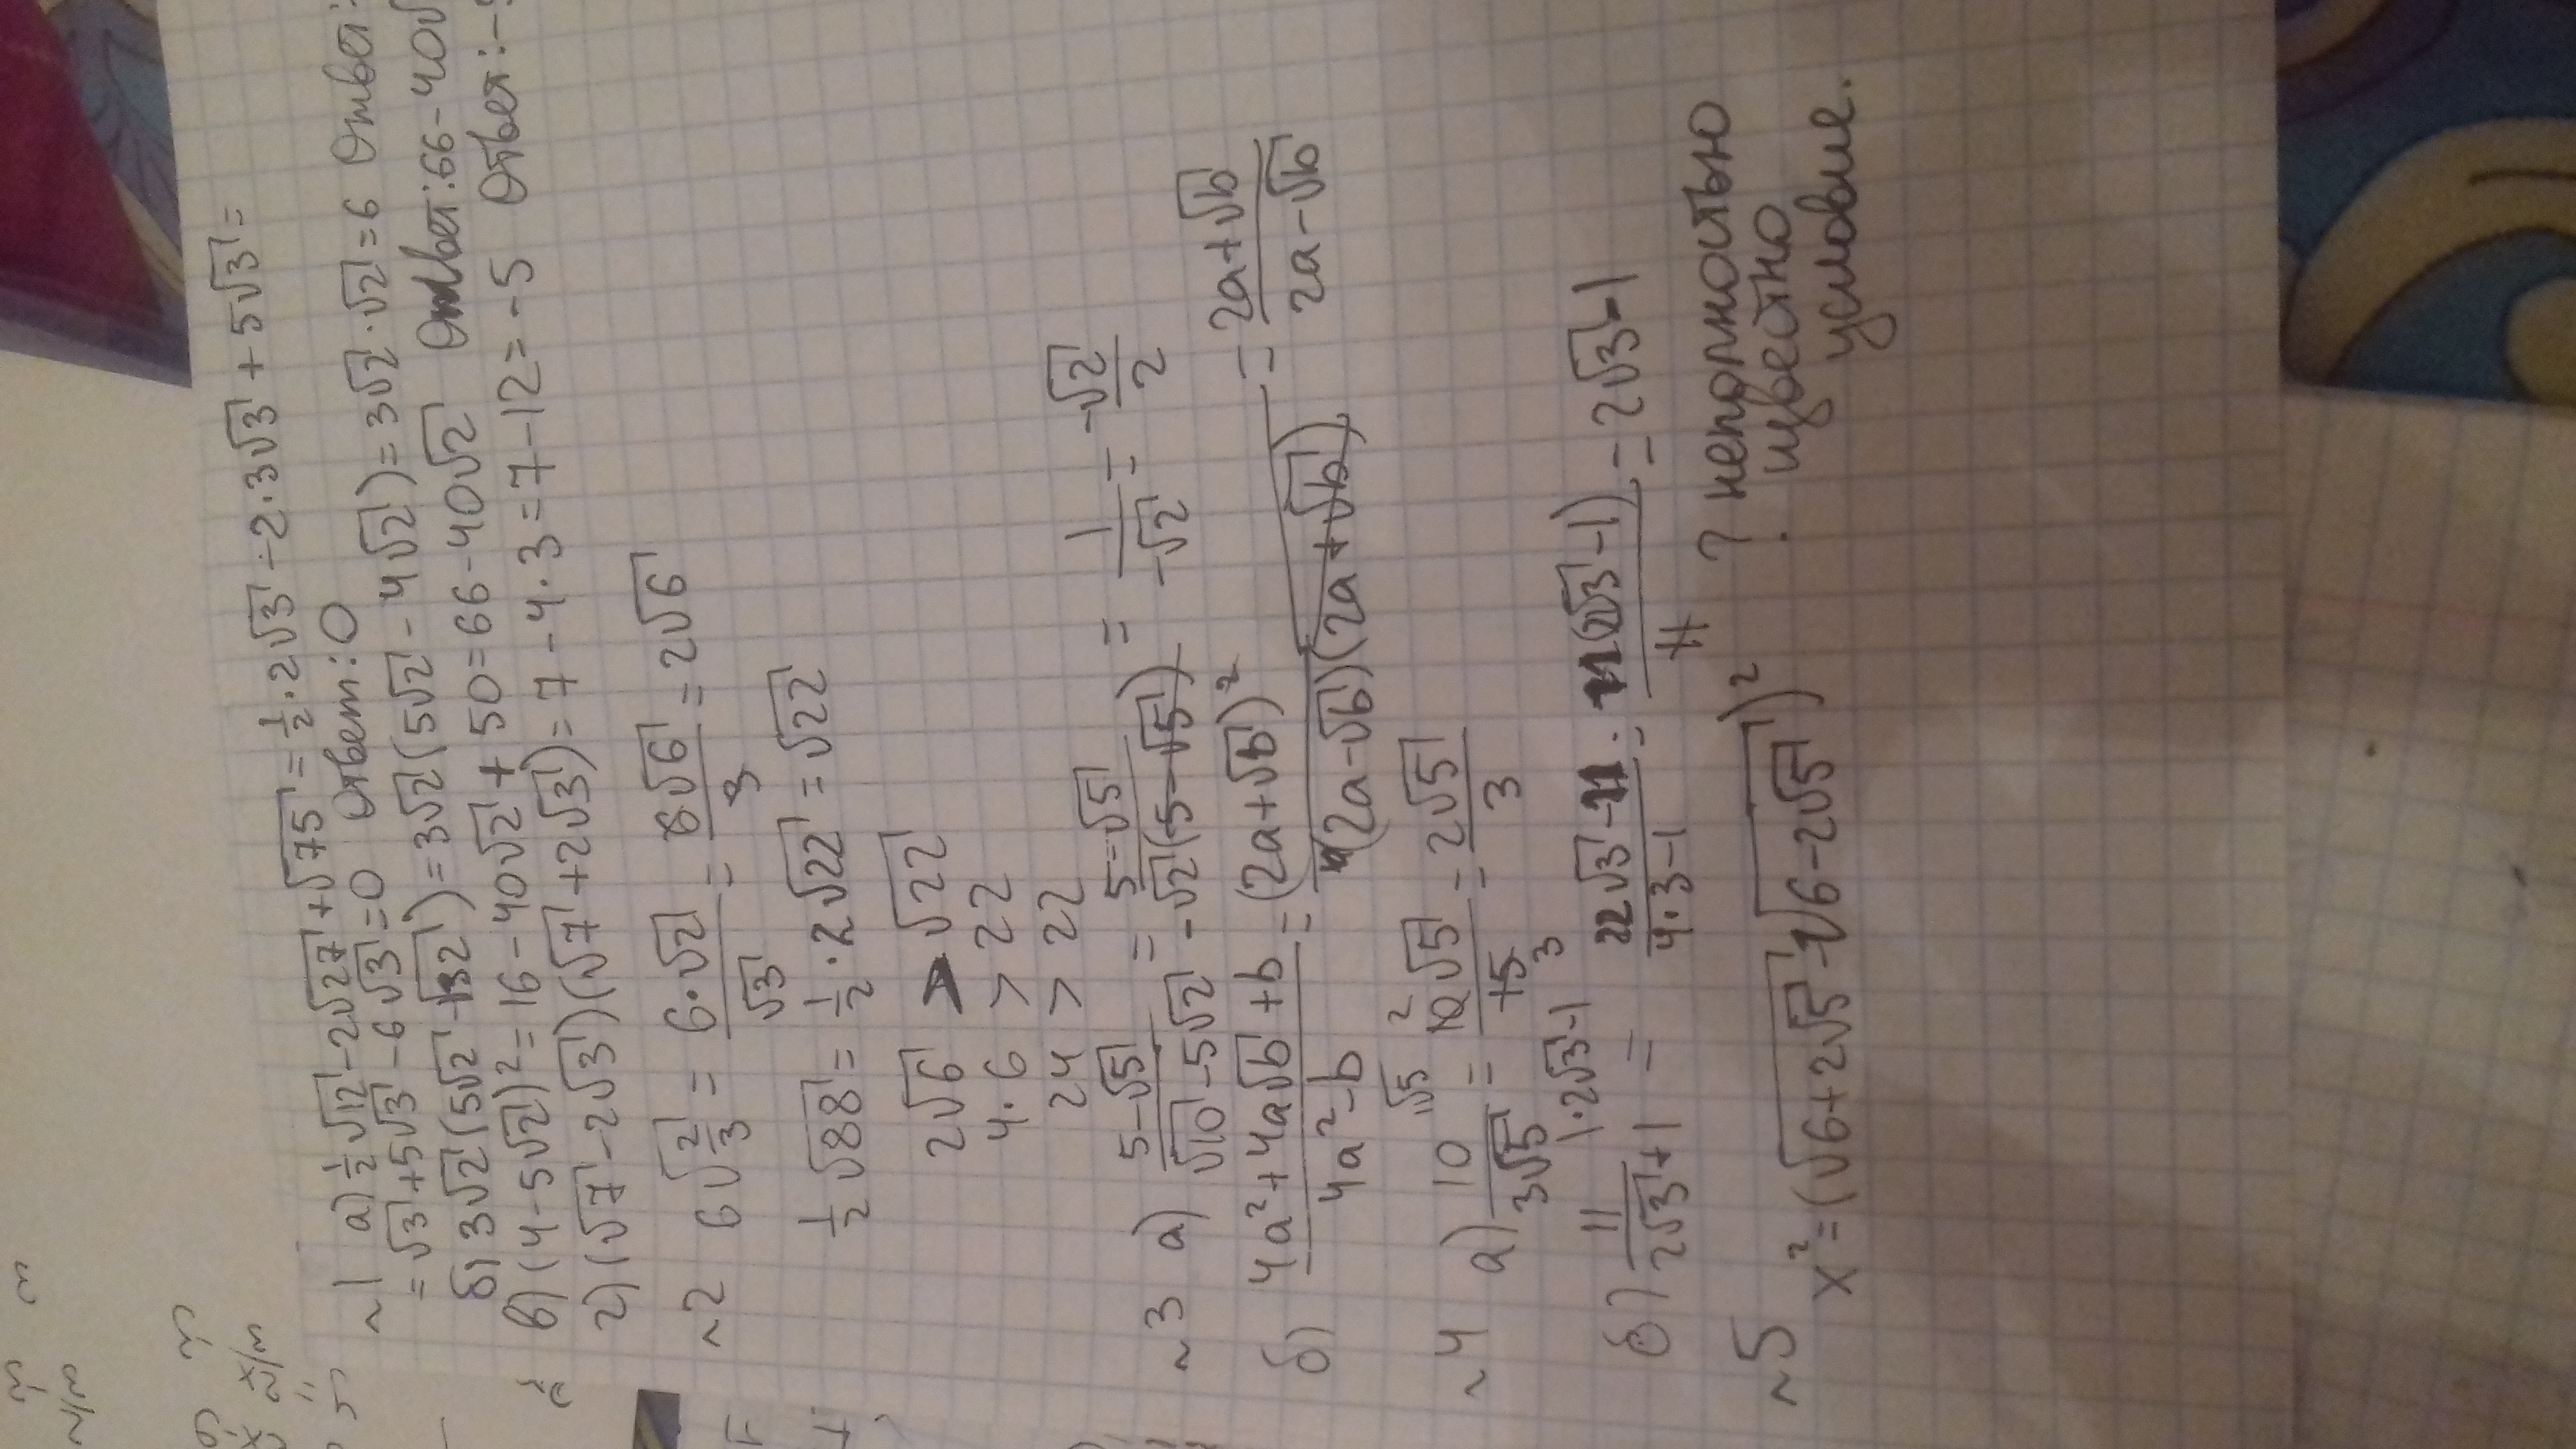 ~1 а) ½√12 - 2√27 + √75 = ½·2√3 - 2·3√3 + 5√3 =
= √3 + 5√3 - 6√3 = 0 Ответ: 0
б) 3√2(5√2 - √32) = 3√2(5√2 - 4√2) = 3√2·√2 = 6 Ответ:
в) (4 - 5√2)² = 16 - 40√2 + 50 = 66 - 40√2 Ответ: 66 - 40√
г) (√7 - 2√3)(√7 + 2√3) = 7 - 4·3 = 7 - 12 = -5 Ответ: -5
~2 6√(2/3) = 6·√2/√3 = 6√6/3 = 2√6
½√88 = ½·2√22 = √22
2√6 > √22
4·6 > 22
24 > 22
~3 а) (5-√5)/(√10-5√2) = (5-√5)/(-√2(5-√5)) = 1/(-√2) = -√2/2
б) (4a²+4a√b+b)/(4a²-b) = (2a+√b)²/((2a-√b)(2a+√b)) = (2a+√b)/(2a-√b)
~4 а) 10/(3√5) ^(√5) = 10√5/15 = 2√5/3
б) 11/(2√3+1) ^(1·2√3-1) = (22√3-11)/(4·3-1) = 11(2√3-1)/11 = 2√3-1
~5 x² = (√(6+2√5) - √(6-2√5))² ? неполностью
известно
условие.